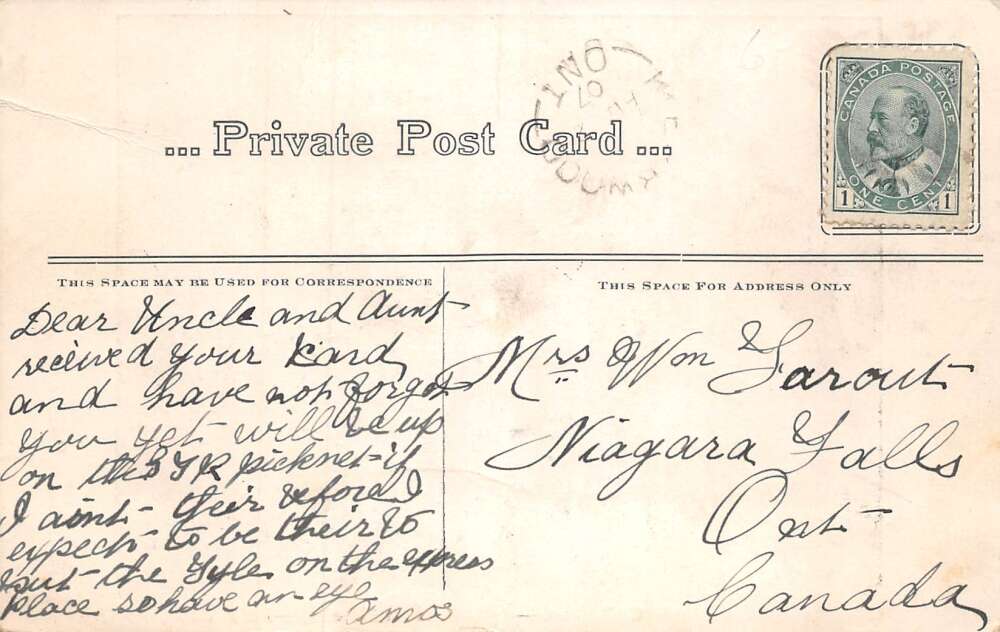 ONT
07
... Private Post Card ...
CANADA POSTAGE
ONE CENT
1 1
THIS SPACE MAY BE USED FOR CORRESPONDENCE
THIS SPACE FOR ADDRESS ONLY
Dear Uncle and Aunt
recieved your Kard
and have not forgot
you yet will be up
on the picknet if
I aint their before I
expect to be their to
put the on the express
place so have an eye
Amos
Mrs Wm Sarout
Niagara Falls
Ont
Canada